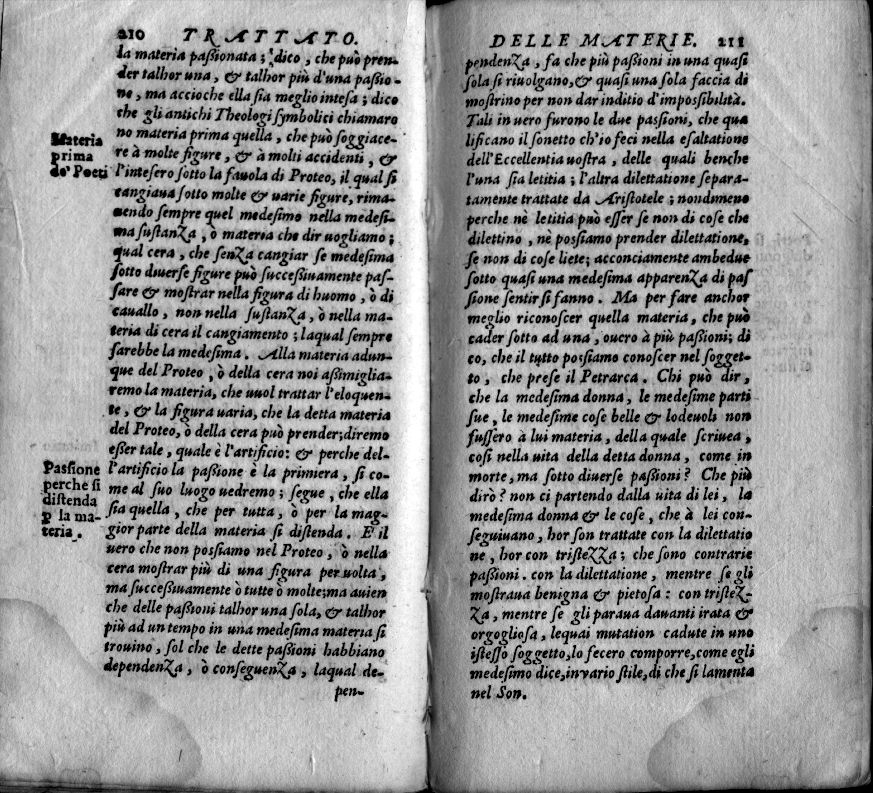 210 TRATTATO.
la materia paſsionata; dico, che può pren-
der talhor una, & talhor più d'una paſsio-
ne, ma accioche ella ſia meglio inteſa; dico
che gli antichi Theologi ſymbolici chiamaro
no materia prima quella, che può ſoggiace-
re à molte figure, & à molti accidenti, &
l'inteſero ſotto la fauola di Proteo, il qual ſi
cangiaua ſotto molte & uarie figure, rima-
nendo ſempre quel medeſimo nella medeſi-
ma ſuſtanza, ò materia che dir uogliamo;
qual cera, che ſenza cangiar ſe medeſima
ſotto diuerſe figure può ſucceſsiuamente paſ-
ſare & moſtrar nella figura di huomo, ò di
cauallo, non nella ſuſtanza, ò nella ma-
teria di cera il cangiamento; laqual ſempre
ſarebbe la medeſima. Alla materia adun-
que del Proteo, ò della cera noi aſsimiglia-
remo la materia, che uuol trattar l'eloquen-
te, & la figura uaria, che la detta materia
del Proteo, ò della cera può prender; diremo
eſſer tale, quale è l'artificio: & perche del-
l'artificio la paſsione è la primiera, ſi co-
me al ſuo luogo uedremo; ſegue, che ella
ſia quella, che per tutta, ò per la mag-
gior parte della materia ſi diſtenda. E il
uero che non poſsiamo nel Proteo, ò nella
cera moſtrar più di una figura per uolta,
ma ſucceſsiuamente ò tutte ò molte; ma auien
che delle paſsioni talhor una ſola, & talhor
più ad un tempo in una medeſima materia ſi
trouino, ſol che le dette paſsioni habbiano
dependenza, ò conſeguenza, laqual de-
pen-
Materia
prima
de' Poeti
Paſsione
perche ſi
diſtenda
p la ma-
teria.
DELLE MATERIE. 211
pendenza, fa che più paſsioni in una quaſi
ſola ſi riuolgano, & quaſi una ſola faccia di
moſtrino per non dar inditio d'impoſsibilità.
Tali in uero furono le due paſsioni, che qua
lificano il ſonetto ch'io feci nella eſaltatione
dell'Eccellentia uoſtra, delle quali benche
l'una ſia letitia; l'altra dilettatione ſepara-
tamente trattate da Ariſtotele; nondimeno
perche nè letitia può eſſer ſe non di coſe che
dilettino, nè poſsiamo prender dilettatione,
ſe non di coſe liete; acconciamente ambedue
ſotto quaſi una medeſima apparenza di paſ
ſione ſentir ſi fanno. Ma per fare anchor
meglio riconoſcer quella materia, che può
cader ſotto ad una, ouero à più paſsioni; di
co, che il tutto poſsiamo conoſcer nel ſogget-
to, che preſe il Petrarca. Chi può dir,
che la medeſima donna, le medeſime parti
ſue, le medeſime coſe belle & lodeuoli non
fuſſero à lui materia, della quale ſcriuea,
coſi nella uita della detta donna, come in
morte, ma ſotto diuerſe paſsioni? Che più
dirò? non ci partendo dalla uita di lei, la
medeſima donna & le coſe, che à lei con-
ſeguiuano, hor ſon trattate con la dilettatio
ne, hor con triſtezza; che ſono contrarie
paſsioni. con la dilettatione, mentre ſe gli
moſtraua benigna & pietoſa: con triſtez-
za, mentre ſe gli paraua dauanti irata &
orgoglioſa, lequai mutation cadute in uno
iſteſſo ſoggetto, lo fecero comporre, come egli
medeſimo dice, in vario ſtile, di che ſi lamenta
nel Son.